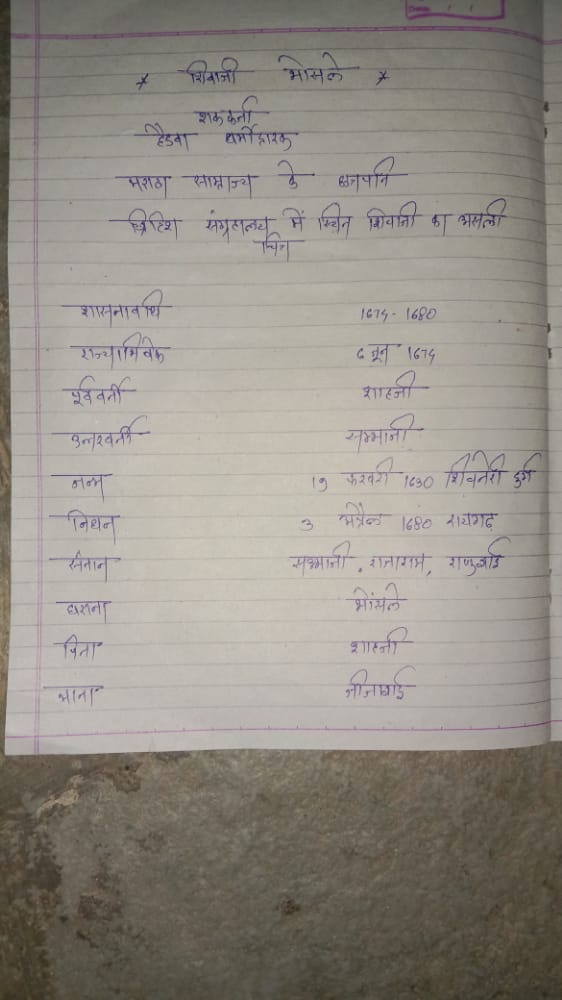 * शिवाजी भोसले *
शककर्ता
हैंदवा धर्मोद्धारक
मराठा साम्राज्य के छत्रपति
ब्रिटिश संग्रहालय में स्थित शिवाजी का असली
चित्र
शासनावधि 1674-1680
राज्याभिषेक 6 जून 1674
पूर्ववर्ती शाहजी
उत्तरवर्ती सम्भाजी
जन्म 19 फरवरी 1630 शिवनेरी दुर्ग
निधन 3 अप्रैल 1680 रायगढ़
संतान सम्भाजी, राजाराम, राणुबाई
घराना भोंसले
पिता शाहजी
माता जीजाबाई